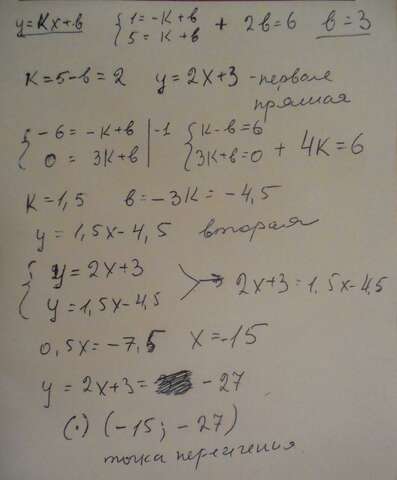 y=Kx+в { 1=-K+в 5=K+в + 2в=6 в=3
K=5-в=2 y=2x+3 - первая
прямая
{ -6=-K+в |·-1 0=3K+в { K-в=6 3K+в=0 + 4K=6
K=1,5 в=-3K=-4,5
y=1,5x-4,5 вторая
{ y=2x+3 y=1,5x-4,5 > 2x+3=1,5x-4,5
0,5x=-7,5 x=-15
y=2x+3= -27
(·) (-15; -27)
точка пересечения